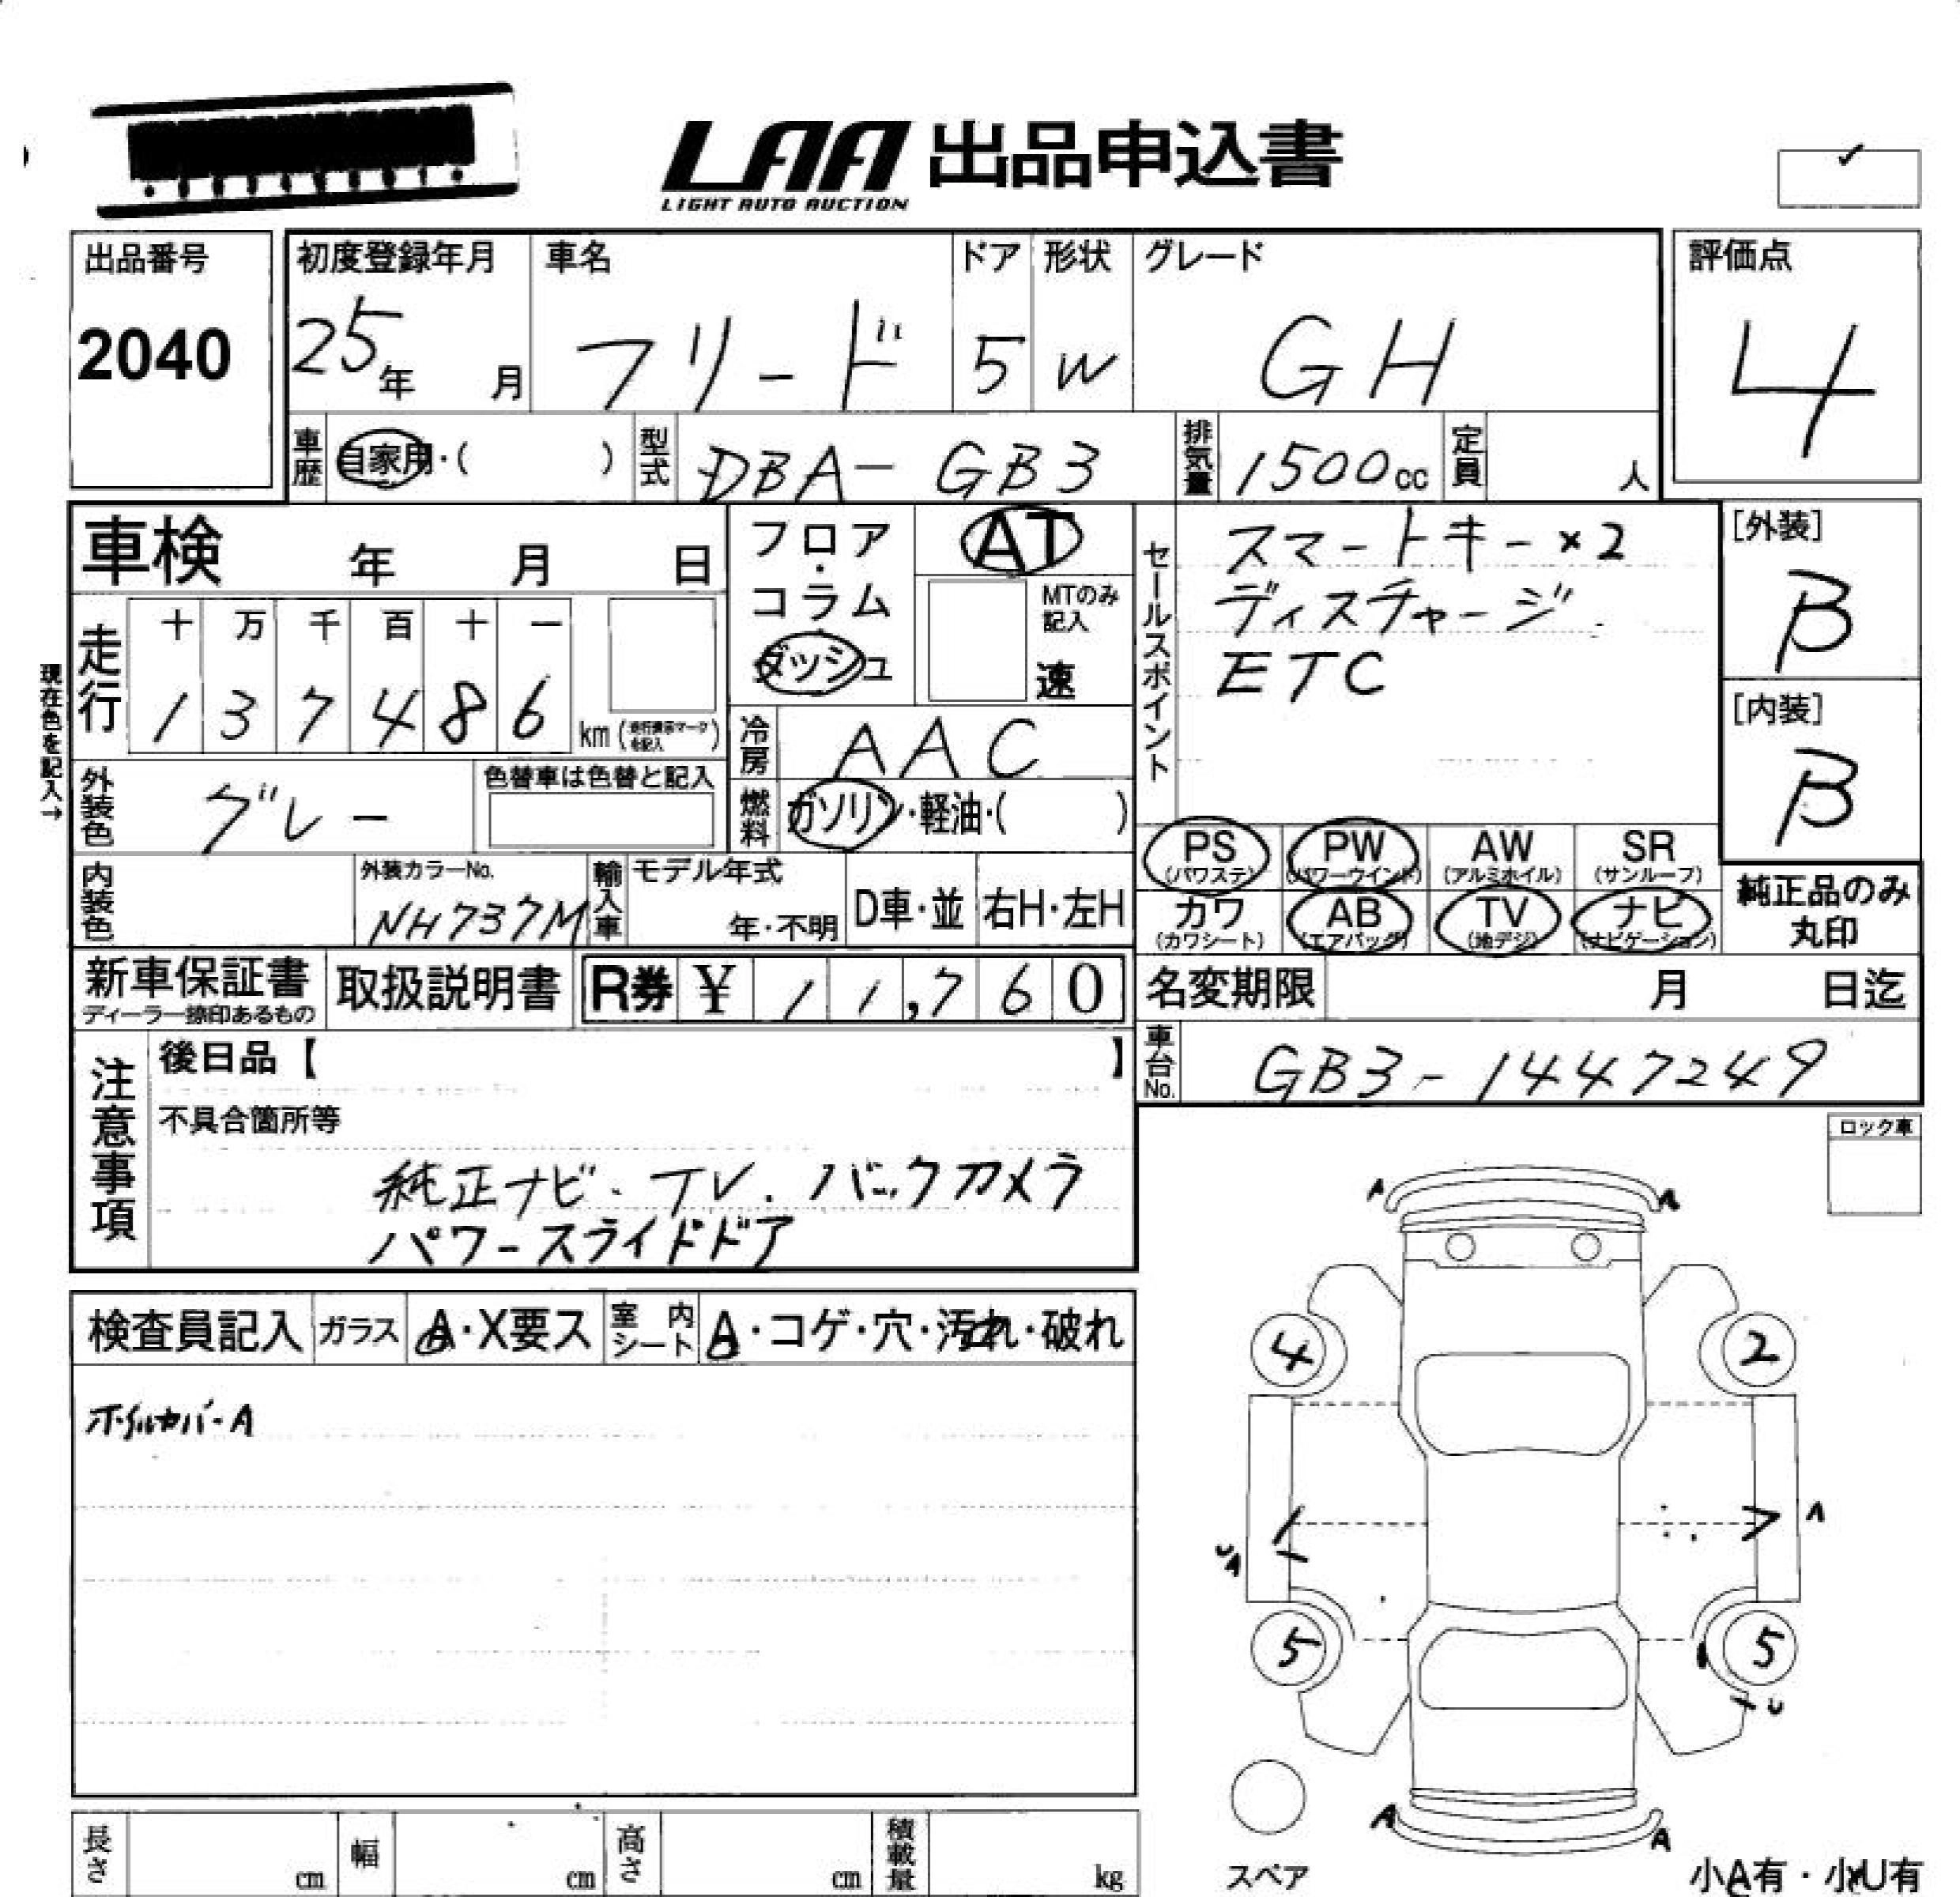 LAA 出品申込書
LIGHT AUTO AUCTION
出品番号
2040
初度登録年月
25年 月
車名
フリード
ドア
5
形状
W
グレード
GH
評価点
4
車歴 自家用・( )
型式 DBA-GB3
排気量 1500cc
定員 人
車検 年 月 日
フロア・コラム・ダッシュ
AT
MTのみ記入
速
セールスポイント
スマートキー×2
ディスチャージ
ETC
[外装]
B
[内装]
B
現在色を記入→
走行
十 万 千 百 十 一
1 3 7 4 8 6 km
冷房 AAC
燃料 ガソリン・軽油・( )
外装色 グレー
色替車は色替と記入
内装色
外装カラーNo.
NH737M
輸入車
モデル年式
年・不明
D車・並
右H・左H
PS (パワステ)
PW (パワーウインド)
AW (アルミホイル)
SR (サンルーフ)
カワ (カワシート)
AB (エアバッグ)
TV (地デジ)
ナビ (ナビゲーション)
純正品のみ丸印
新車保証書
ディーラー捺印あるもの
取扱説明書
R券 ¥ 11,760
名変期限 月 日迄
車台No. GB3-1447249
注意事項
後日品【 】
不具合箇所等
純正ナビ・TV・バックカメラ
パワースライドドア
ロック車
検査員記入
ガラス A・X要ス
室内シート A・コゲ・穴・汚れ・破れ
ホイルカバーA
A A
4 2
1 7 A
U A
5 5
U
A A
スペア
小A有・小U有
長さ cm
幅 cm
高さ cm
積載量 kg